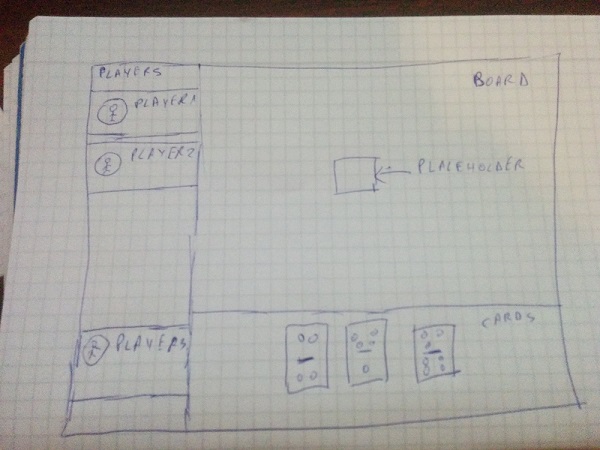 PLAYERS
PLAYER1
PLAYER2
PLAYERS
BOARD
PLACEHOLDER
CARDS